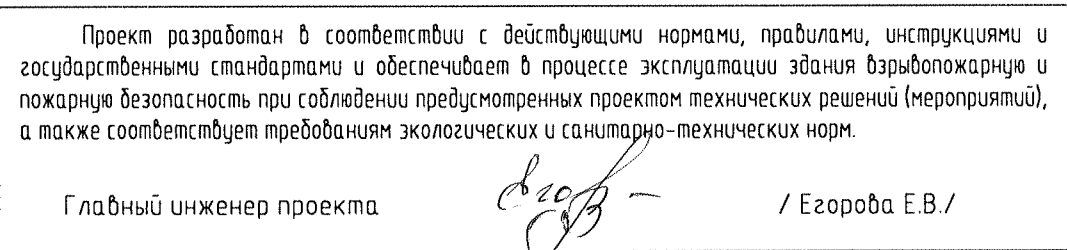 Проект разработан в соответствии с действующими нормами, правилами, инструкциями и
государственными стандартами и обеспечивает в процессе эксплуатации здания взрывопожарную и
пожарную безопасность при соблюдении предусмотренных проектом технических решений (мероприятий),
а также соответствует требованиям экологических и санитарно-технических норм.
Главный инженер проекта / Егорова Е.В./